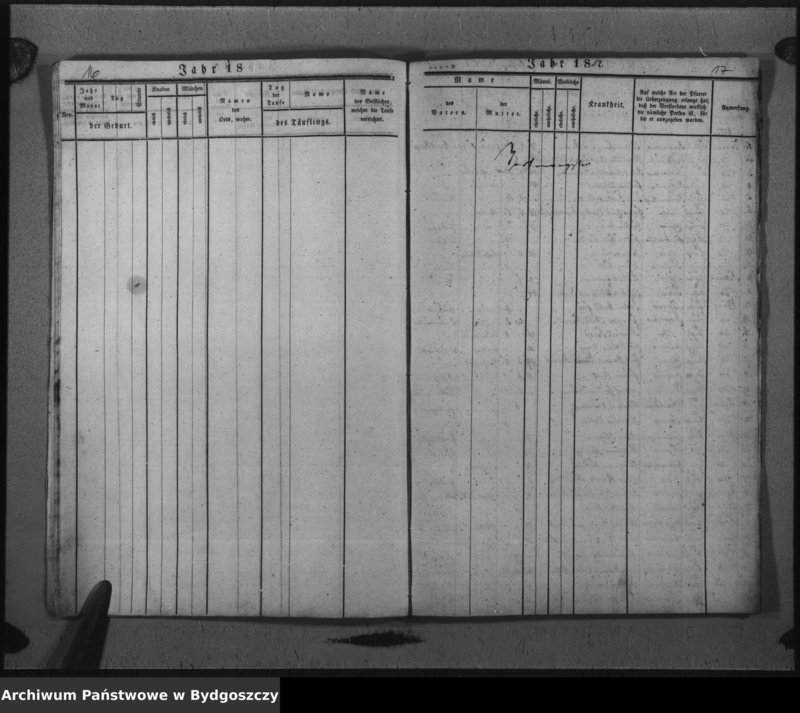 16
Jahr 18
Nro.
Jahr und Monat
Tag
Stunde
der Geburt.
Knaben
Mädchen
ehelich
unehelich
ehelich
unehelich
Namen
des
Orts, woher.
Tag
der
Taufe
Name
des Täuflings.
Name
des Geistlichen,
welcher die Taufe
verrichtet.
Jahr 1852
17
Name
des
Vaters.
der
Mutter.
Männl.
Weibliche
eheliche.
uneheliche.
eheliche.
uneheliche.
Krankheit.
Auf welche Art der Pfarrer
die Ueberzeugung erlangt hat,
daß der Verstorbene wirklich
die nämliche Person ist, für
die er ausgegeben worden.
Anmerkung.
Archiwum Państwowe w Bydgoszczy